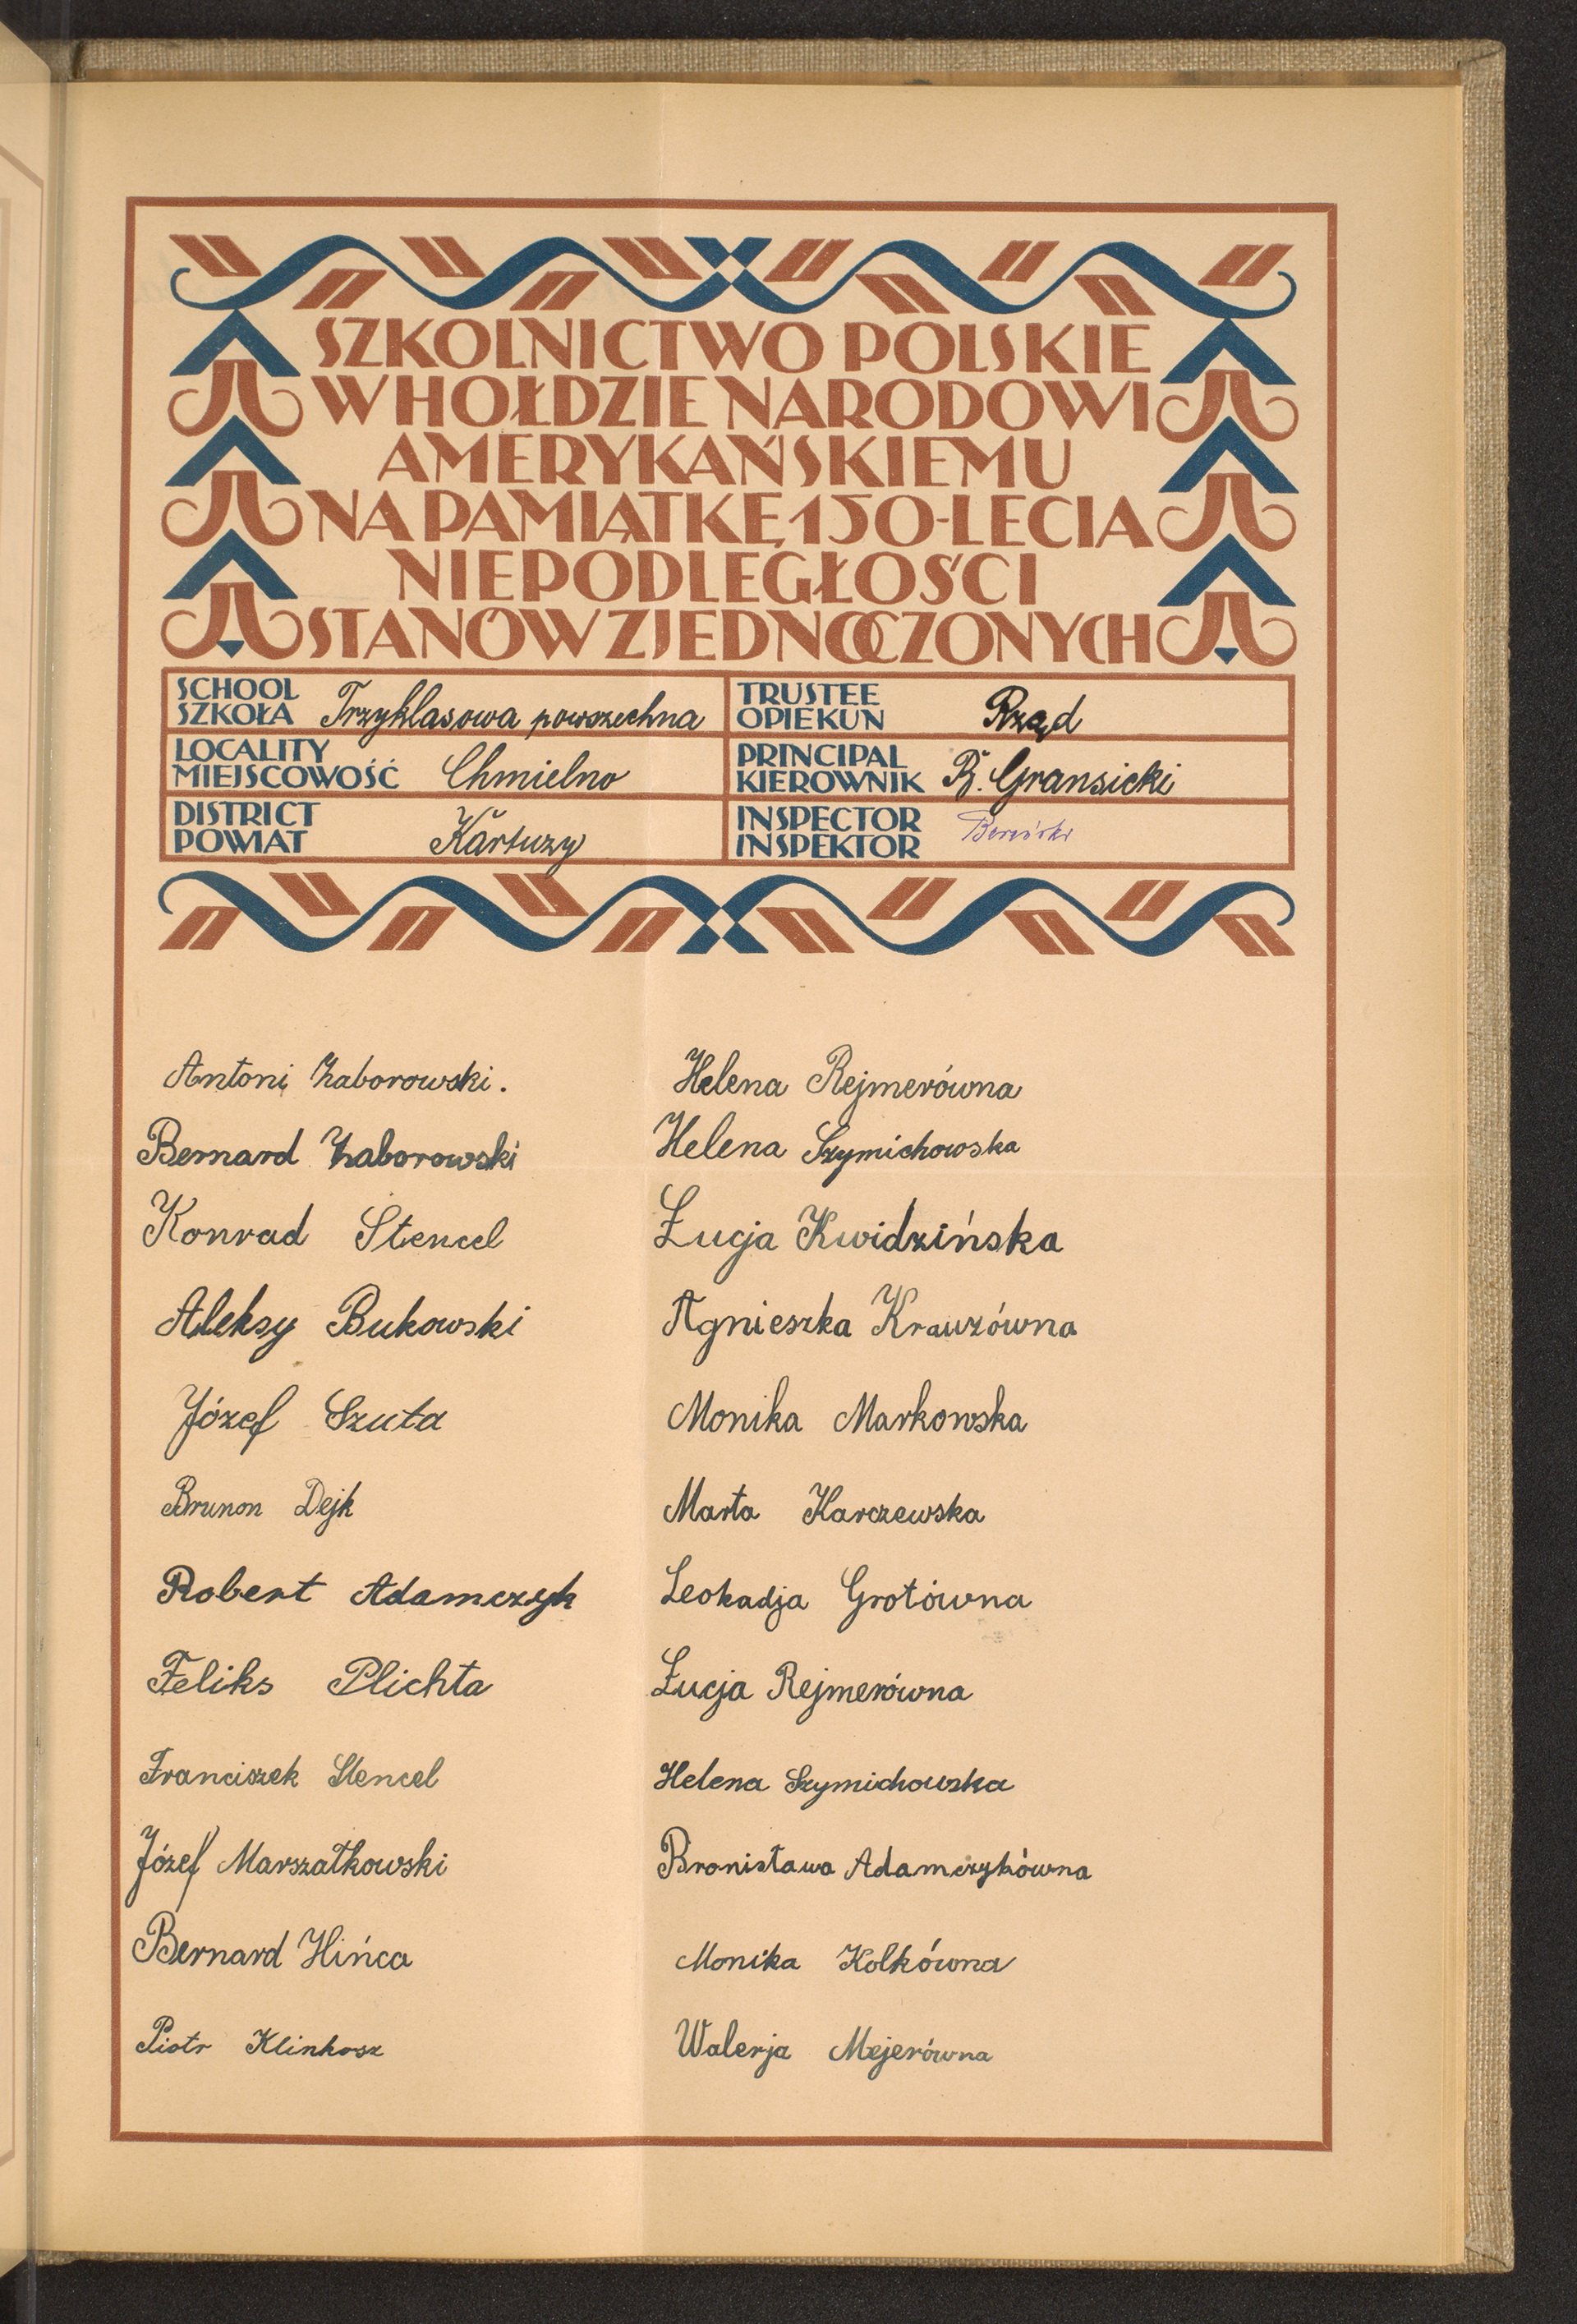 SZKOLNICTWO POLSKIE
W HOŁDZIE NARODOWI
AMERYKAŃSKIEMU
NA PAMIĄTKĘ 150-LECIA
NIEPODLEGŁOŚCI
STANÓW ZJEDNOCZONYCH
SCHOOL
SZKOŁA Trzyklasowa powszechna
TRUSTEE
OPIEKUN Rząd
LOCALITY
MIEJSCOWOŚĆ Chmielno
PRINCIPAL
KIEROWNIK B. Gransicki
DISTRICT
POWIAT Kartuzy
INSPECTOR
INSPEKTOR
Antoni Zaborowski.
Bernard Zaborowski
Konrad Stencel
Aleksy Bukowski
Józef Szuta
Brunon Dejk
Robert Adamczyk
Feliks Plichta
Franciszek Stencel
Józef Marszałkowski
Bernard Hińca
Piotr Klinkosz
Helena Rejmerówna
Helena Szymichowska
Łucja Kwidzińska
Agnieszka Krauzówna
Monika Markowska
Marta Karczewska
Leokadja Grotówna
Łucja Rejmerówna
Helena Szymichowska
Bronisława Adamczykówna
Monika Kolkówna
Walerja Mejerówna